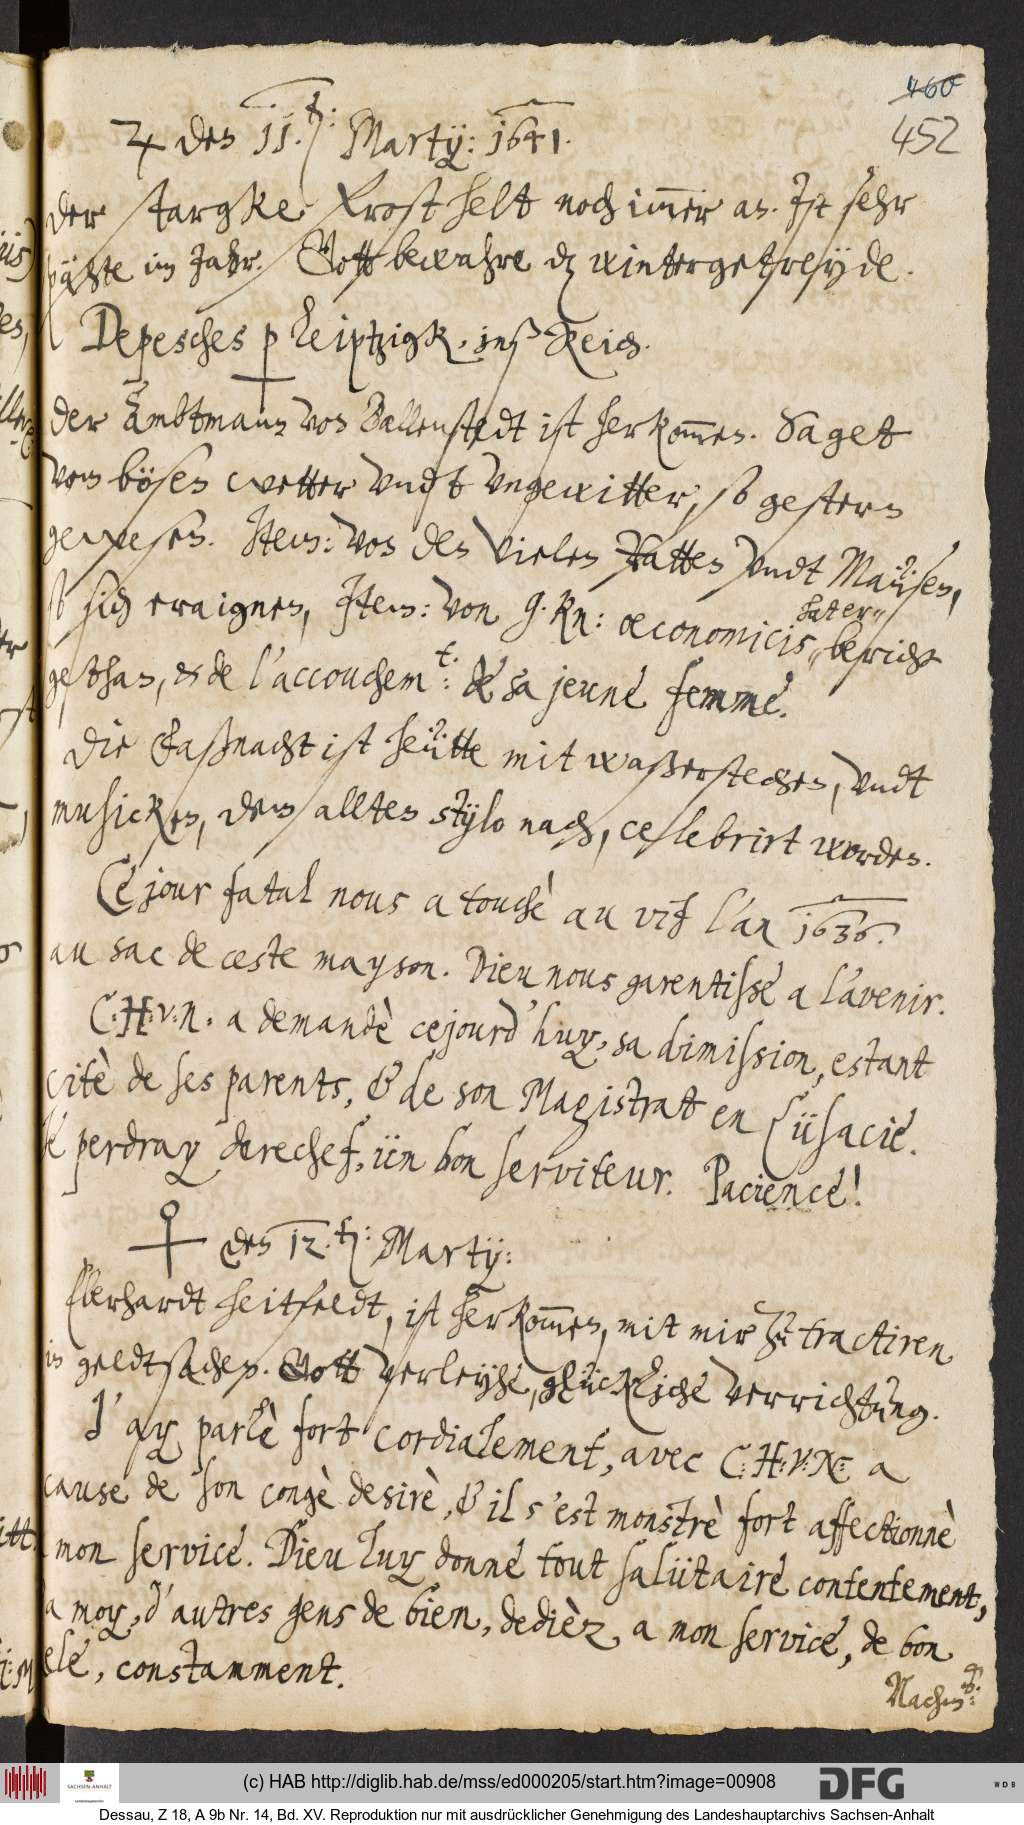 460
452
♃ den 11.ten: Martij: 1641.
Der starcke Frost helt noch immer an. Ist sehr
späte im Jahr. Gott bewahre dz wintergetreyde.
Depeschen p Leiptzigk, inß Reich.
Der Ambtmann von Ballenstedt ist herkommen. Saget
vom bösen wetter undt ungewitter, so gestern
gewesen. Item: von den vielen Ratten undt Maüsen,
so sich eraignen, Item: von g. kn: œconomicis
hat er
bericht
gethan, et de l'accouchemt: de sa jeune femme.
Die Faßnacht ist heütte mit waßerstechen, undt
musicken, dem allten stylo nach, celebrirt worden.
Ce jour fatal nous a touchè au vif l'an 1636.
au sac de ceste mayson. Dieu nous garentisse a l'avenir.
C: H: v: N. a demandè cejourd'huy, sa dimission, estant
citè de ses parents, & de son Magistrat en Lüsacie.
perdray derechef, ün bon serviteur. Pacience!
♀ den 12.ten: Martij:
Eberhardt Heitfeldt, ist herkommen, mit mir zu tractiren
in geldtsachen. Gott verleyhe, glückliche verrichtung.
J'ay parlè fort cordialement, avec C: H: v: N: a
cause de son congè desirè, & il s'est monstrè fort affectionnè
mon service. Dieu luy donne tout salütaire contentement,
a moy, d'autres gens de bien, dedièz, a mon service, de bon
constamment.
(c) HAB http://diglib.hab.de/mss/ed000205/start.htm?image=00908
SACHSEN-ANHALT
DFG
WDB
Dessau, Z 18, A 9b Nr. 14, Bd. XV. Reproduktion nur mit ausdrücklicher Genehmigung des Landeshauptarchivs Sachsen-Anhalt